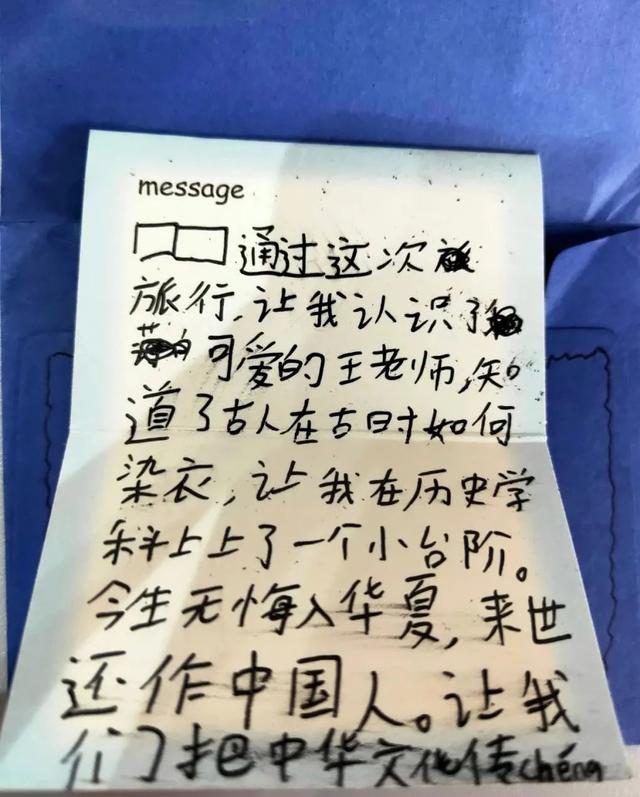 message
通过这次
旅行,让我认识了
可爱的王老师,知
道了古人在古时如何
染衣,让我在历史学
科上上了一个小台阶。
今生无悔入华夏,来世
还作中国人。让我
们把中华文化传chéng